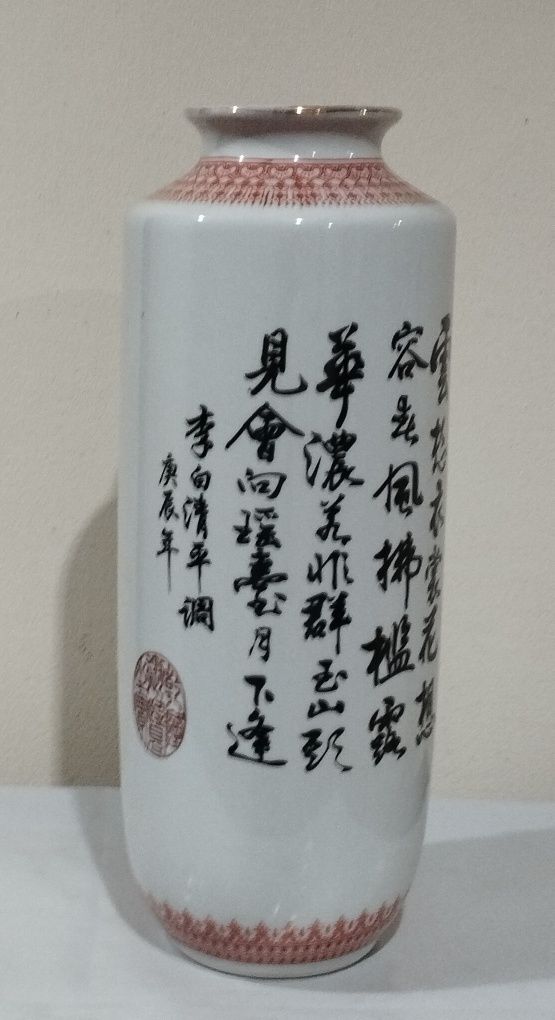 雲想衣裳花想
容春風拂檻露
華濃若非群玉山頭
見會向瑤臺月下逢
李白清平調
庚辰年